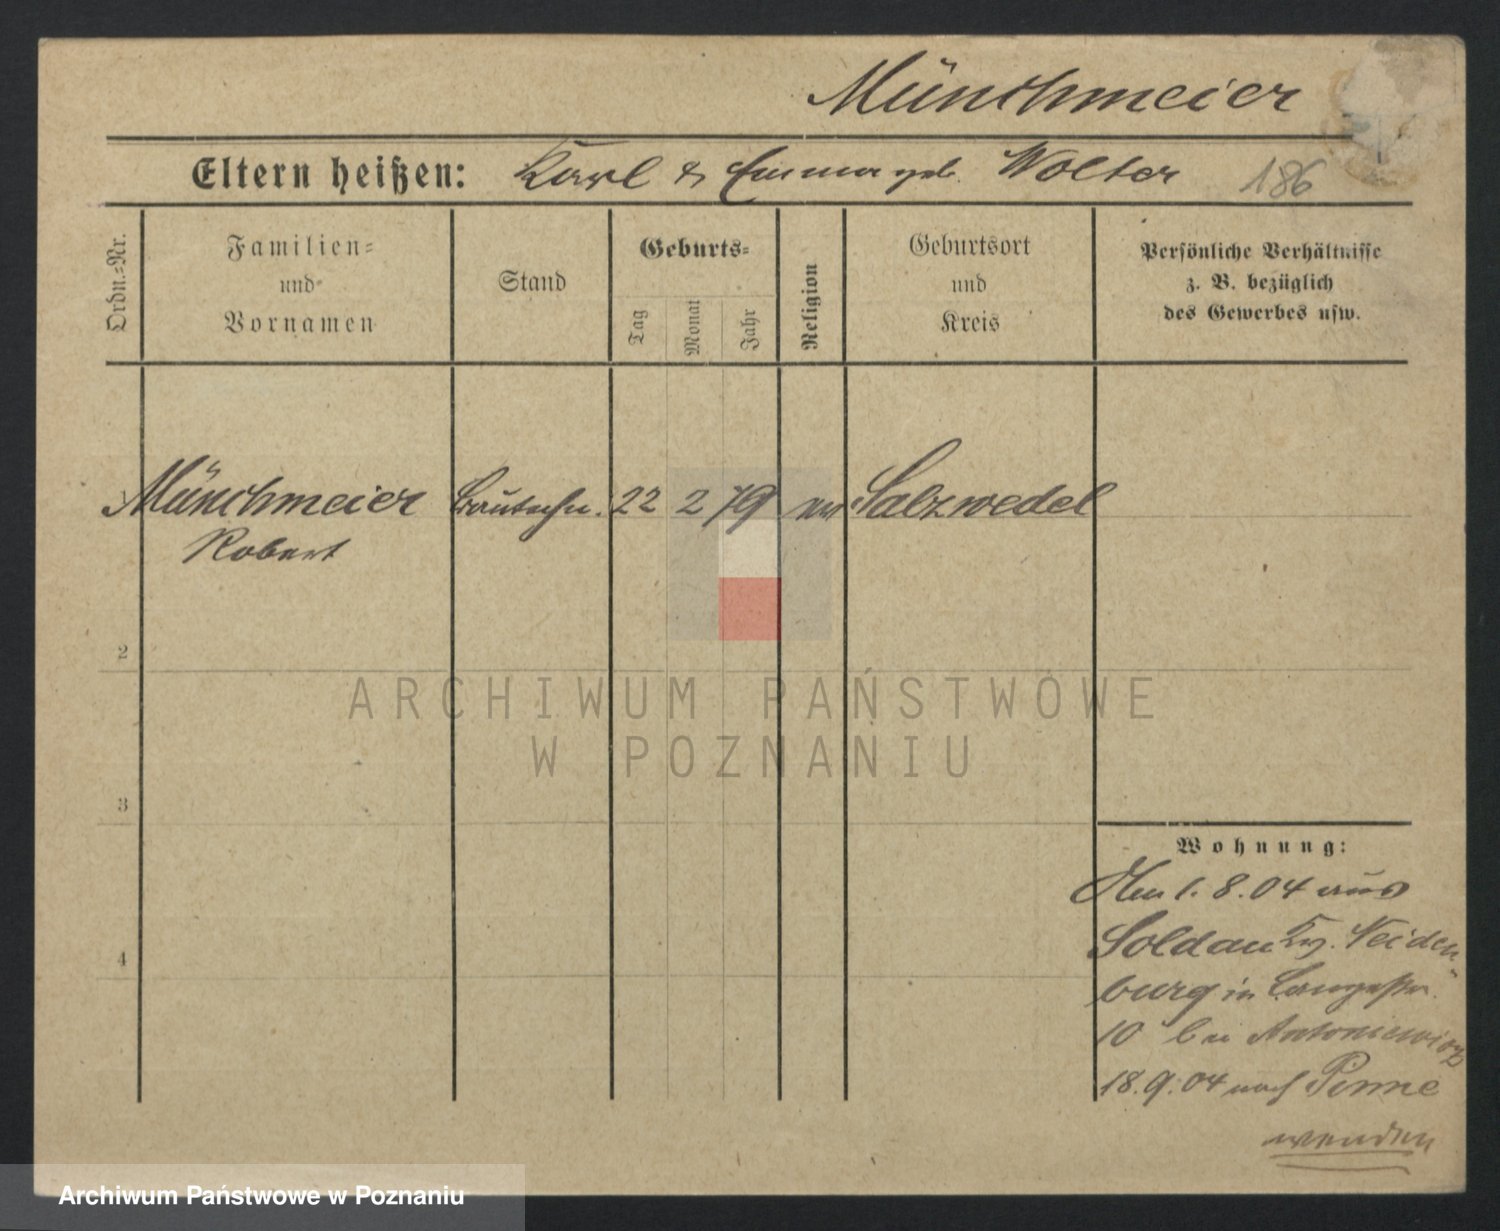 Münchmeier
Eltern heißen: Karl & Emma geb. Wolter 186
Ordn.=Nr.
Familien=
und
Vornamen
Stand
Geburts=
Tag
Monat
Jahr
Religion
Geburtsort
und
Kreis
Persönliche Verhältnisse
z. B. bezüglich
des Gewerbes usw.
1 Münchmeier 22 2 79 Salzwedel
Robert
2
3
4
Wohnung:
1.8.04 aus
Soldau Kr. Neiden
burg in Langestr.
10 bei Antoniewicz
18.9.04 nach Pinne
wenden
ARCHIWUM PAŃSTWOWE
W POZNANIU
Archiwum Państwowe w Poznaniu